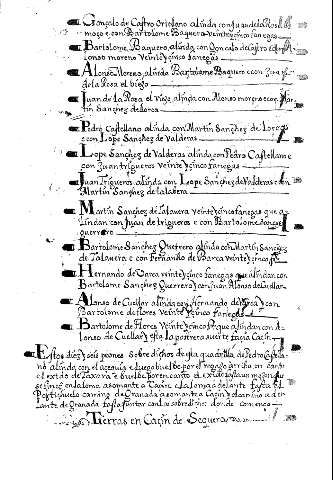 Gonçalo de Castro ortelano alinda con Juan de la Rosa el
moço e con Bartolome Baquero Veinte y cinco fanegas
Bartolome Baquero, alinda con Goncalo de Castro e con A
lonso moreno veinte y cinco fanegas
Alonso Moreno, alinda Bartolome Baquero e con Juan
de la Rosa el biejo
Juan de la Rosa el viejo alinda con Alonso moreno e con Mar
tin Sanchez de Lorca
Pedro Castellano alinda con Martin Sanchez de Lorca
e con Lope Sanchez de Valderas
Lope Sanchez de Valderas alinda con Pedro Castellano e
con Juan trigueros Veinte y cinco fanegas
Juan Trigueros alinda con Lope Sanchez de Valderas e con
Martin Sanchez de talavera
Martin Sanchez de talavera veinte y cinco fanegas que a
lindan con Juan de trigueros e con Bartolome Sanchez
guerrero
Bartolome Sanchez Guerrero alinda con Martin Sanchez
de Talavera e con Fernando de Barca veinte y cinco fs
Hernando de Barca veinte y cinco fanegas que alindan con
Bartolome Sanchez y con Juan Alonso de Cuellar
Alonso de Cuellar alinda con Hernando de Barca y con
Bartolome de flores Veinte y cinco fanegas
Bartolome de Flores Veinte y cinco fs que alindan con A-
lonso de Cuellar y esta la postrera suerte hazia Caçin
Estos diez y seis peones sobre dichos de esta quadrilla de Pedro Castella
no alinda, con el acequia e luego buelbe por el
el exido de
se
Portichuelo camino de Granada asomante a Caçin y
lante de Granada
Tierras en Caçin de Sequera